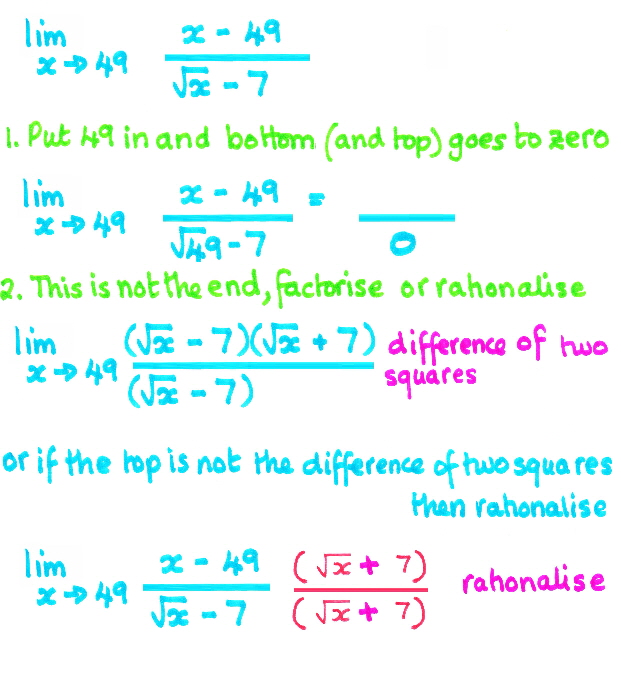 lim x→49 x - 49 / √x - 7
1. Put 49 in and bottom (and top) goes to zero
lim x→49 x - 49 / √49 - 7 = / 0
2. This is not the end, factorise or rationalise
lim x→49 (√x - 7)(√x + 7) / (√x - 7) difference of two squares
or if the top is not the difference of two squares
then rationalise
lim x→49 x - 49 / √x - 7 (√x + 7) / (√x + 7) rationalise